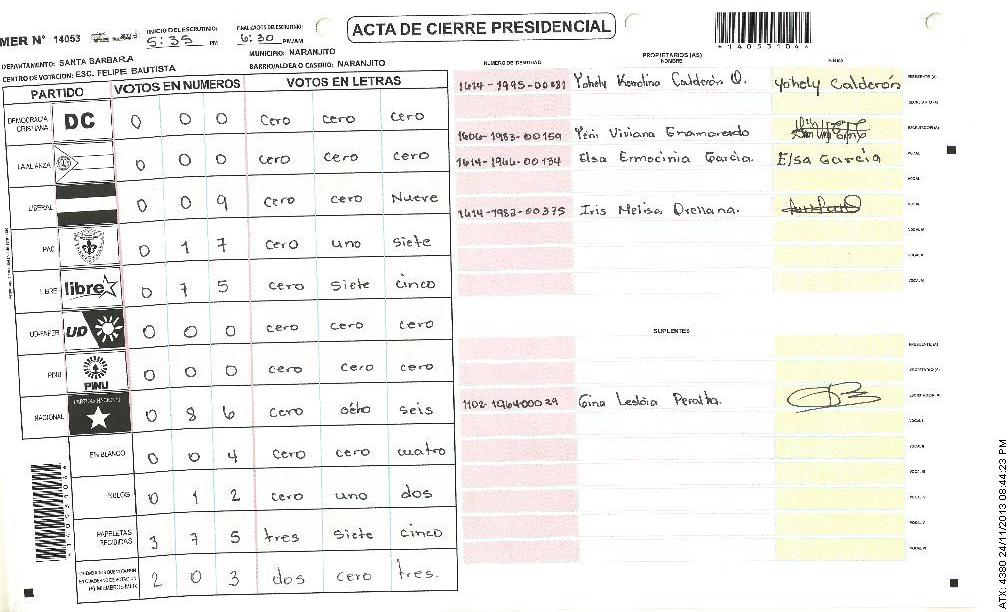 ACTA DE CIERRE PRESIDENCIAL
*1405310*
MER N° 14053
INICIO DEL ESCRUTINIO: 5:35 PM
FINALIZADOS ESCRUTINIO: 6:30 PM/AM
DEPARTAMENTO: SANTA BARBARA
MUNICIPIO: NARANJITO
CENTRO DE VOTACION: ESC. FELIPE BAUTISTA
BARRIO/ALDEA O CASERIO: NARANJITO
PARTIDO VOTOS EN NUMEROS VOTOS EN LETRAS
DEMOCRACIA CRISTIANA DC 0 0 0 cero cero cero
LA ALIANZA 0 0 0 cero cero cero
LIBERAL 0 0 9 cero cero Nueve
PAC 0 1 7 cero uno siete
LIBRE libre 0 7 5 cero siete cinco
UD-FAPER UD 0 0 0 cero cero cero
PINU PINU 0 0 0 cero cero cero
NACIONAL PARTIDO NACIONAL 0 8 6 cero ocho seis
EN BLANCO 0 0 4 cero cero cuatro
NULOS 0 1 2 cero uno dos
PAPELETAS RECIBIDAS 3 7 5 tres siete cinco
2 0 3 dos cero tres.
PROPIETARIOS (AS)
NUMERO DE IDENTIDAD NOMBRE FIRMA
1614-1995-00081 Yohely Karolina Calderón O. Yohely Calderón PRESIDENTE (A)
SECRETARIO (A)
1606-1983-00159 Yeni Viviana Enamorado ESCRUTADOR (A)
1614-1966-00134 Elsa Ermecinia Garcia. Elsa García VOCAL I
VOCAL II
1614-1983-00375 Iris Melisa Orellana. VOCAL III
VOCAL IV
VOCAL V
VOCAL VI
SUPLENTES
PRESIDENTE (A)
SECRETARIO (A)
1102-1964-00029 Gina Lesbia Peralta. ESCRUTADOR (A)
VOCAL I
VOCAL II
VOCAL III
VOCAL IV
VOCAL V
VOCAL VI
ATX: 4380 24/11/2013 08:44:23 PM